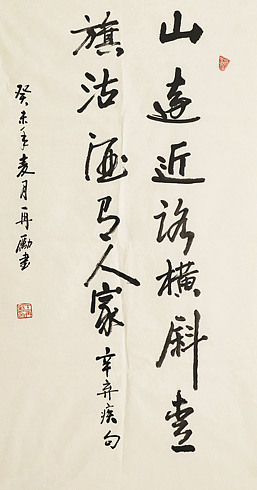 山远近路横斜青
旗沽酒有人家辛弃疾句
癸未年夏月再励书